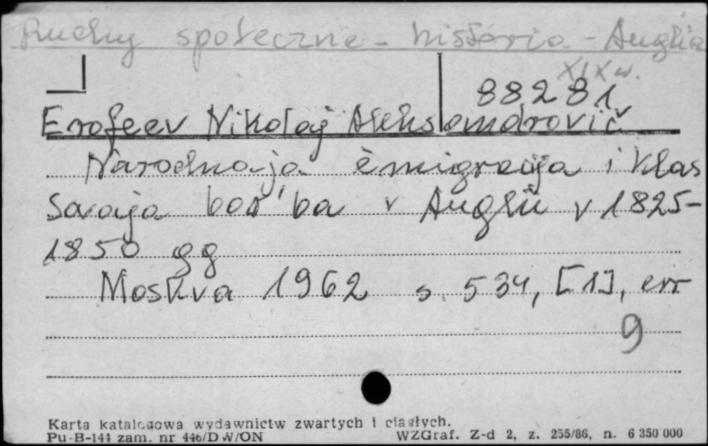 Ruchy społeczne - historia - Anglia
XIX w.
88281
Erofeev Nikolaj Aleksandrovič
Narodnaja èmigracija i klas
sovaja bor'ba v Anglii v 1825-
1850 gg
Moskva 1962 s. 534, [1], err
9
Karta katalogowa wydawnictw zwartych i ciągłych.
Pu-B-141 zam. nr 446/DW/ON WZGraf. Z-d 2, z. 255/86, n. 6 350 000